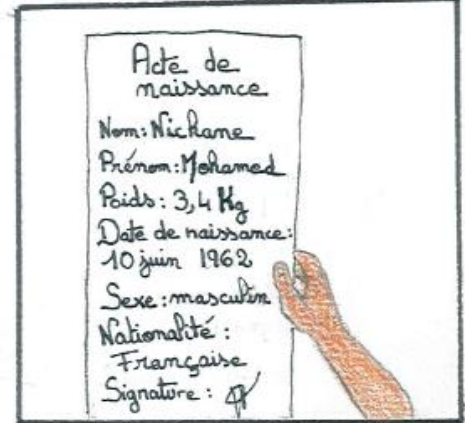 Acte de
naissance
Nom: Nichane
Prénom: Mohamed
Poids: 3,4 Kg
Date de naissance:
10 juin 1962
Sexe: masculin
Nationalité :
Française
Signature :